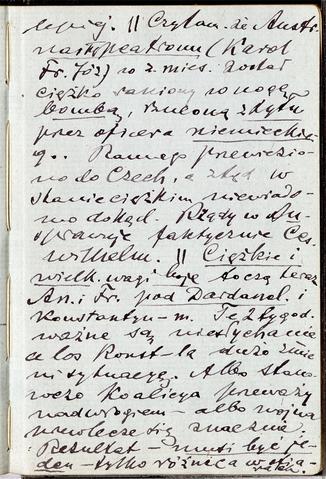 lepiej. || Czytam, że Austr.
następca tronu (Karol
Fr. Józ) w z. mies. został
ciężko raniony w nogę
bombą, rzuconą z tyłu
przez oficera niemieckie
go.. Rannego przewiezio
no do Czech, a stąd w
stanie ciężkim niewiado
mo dokąd. Rządy w Au.
sprawuje faktycznie Ces.
Wilhelm. || Ciężkie i
wielk. wagi boje toczą teraz
An. i Fr. pod Dardanel. i
Konstantyn-m. Te 2 tygod.
ważne są niesłychanie
Los Konst-la dużo zmie
ni sytuację. Albo stano
wczo Koalicya przeważy
nad wrogiem – albo wojna
przewlecze się znacznie.
Rezultat – musi być je-
den – tylko różnica w